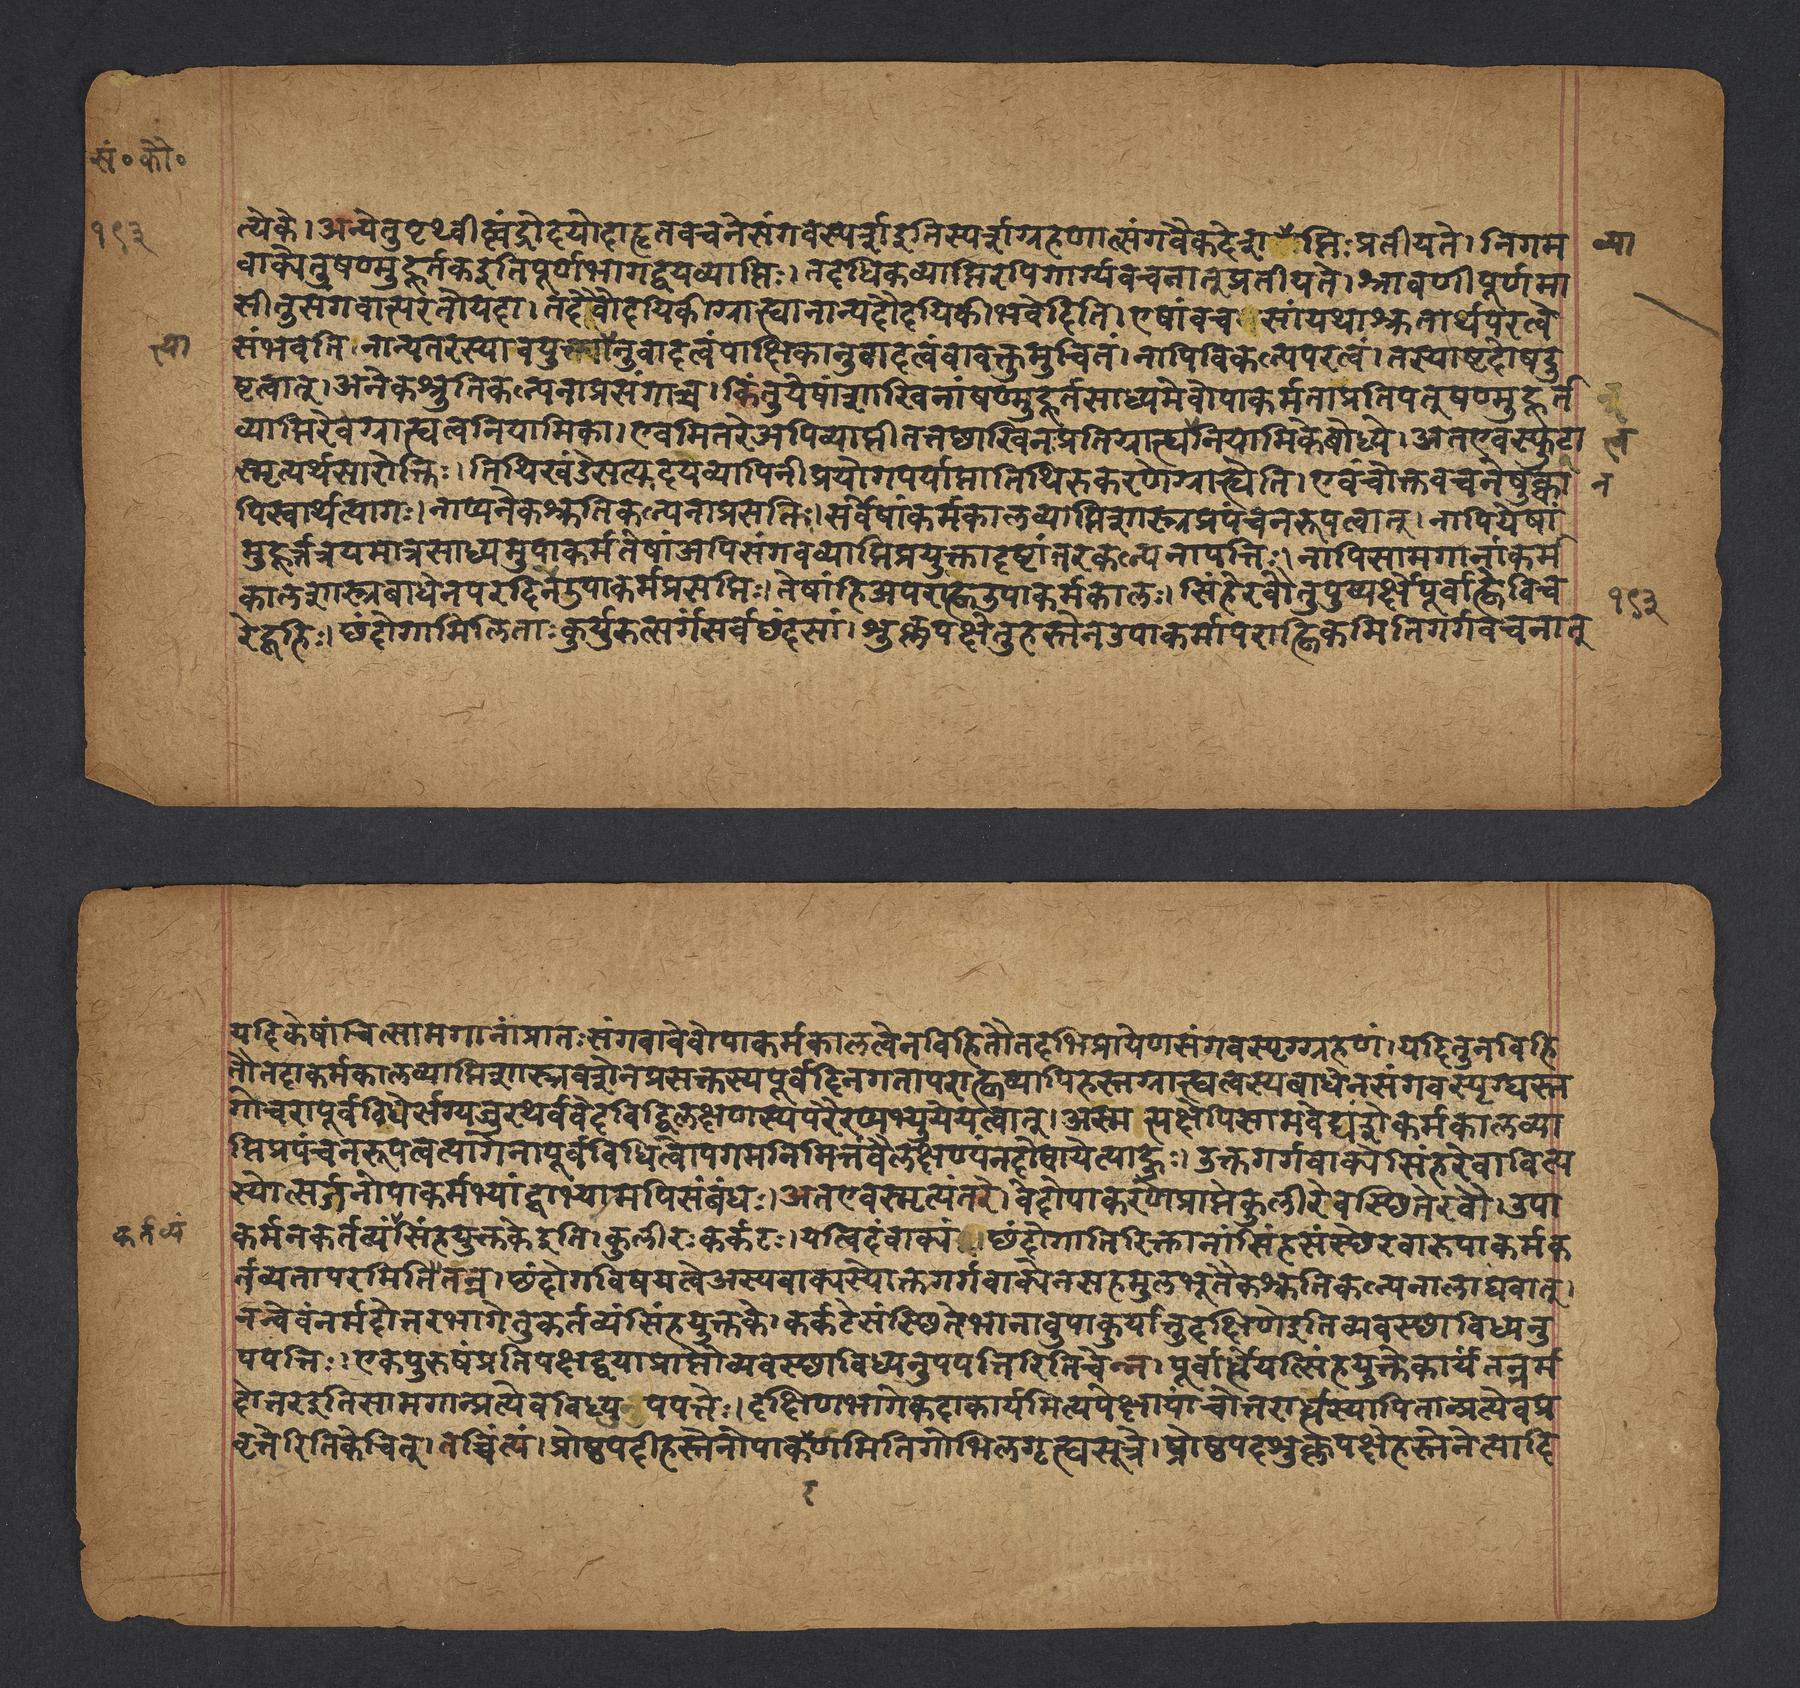 सं॰कौ॰
१९३
त्येके। अन्येतुपृथ्वीचंद्रोदयोदाहृतवचनेसंगवस्पर्शइतिस्पर्शग्रहणात्संगवैकदेशव्याप्तिःप्रतीयते। निगम
वाक्येतुषण्मुहूर्तकइतिपूर्णभागद्वयव्याप्तिः। तदधिकव्याप्तिरपिगार्ग्यवचनात्तुप्रतीयते। श्रावणीपूर्णमा
सीतुसंगवात्परतोयदा। तदैवौदयिकीग्राह्यानान्यदौदयिकीभवेदिति। एषांवचसांयथाश्रुतार्थपरत्वे
संभवति। नान्यतरस्यावयुत्यानुवादत्वंपाक्षिकानुवादत्वंवावक्तुमुचितं। नापिविकल्पपरत्वं। तस्याष्टदोषदु
ष्टत्वात्। अनेकश्रुतिकल्पनाप्रसंगाच्च। किंतुयेषांशाखिनांषण्मुहूर्तसाध्यमेवोपाकर्मतान्प्रतिषण्मुहूर्त
व्याप्तिरेवग्राह्यत्वनियामिका। एवमितरेअपिव्याप्तीतत्तछाखिनःप्रतिग्राह्यत्वनियामिकेबोध्ये। अतएवस्फुटा
स्मृत्यर्थसारोक्तिः। तिथिखंडेसत्यहृदयव्यापिनीप्रयोगपर्याप्तातिथिरुकरणेग्राह्येति। एवंचोक्तवचनेषुनक्वा
पिस्वार्थत्यागः। नाप्यनेकश्रुतिकल्पनाप्रसक्तिः। सर्वेषांकर्मकालव्याप्तिशास्त्रप्रपंचनरूपत्वात्। नापियेषां
मुहूर्त्तत्रयमात्रसाध्यमुपाकर्मतेषांअपिसंगवव्याप्तिप्रयुक्तादृष्टांतरकल्पनापत्तिः। नापिसामगानांकर्म
कालशास्त्रबाधेनपरदिनेउपाकर्मप्रसक्तिः। तेषांहिअपराह्णउपाकर्मकालः। सिंहेरवौतुपुष्यर्क्षेपूर्वाह्णेविच
रेद्बहिः। छंदोगामिलिताःकुर्युरुत्सर्गंसर्वछंदसां। शुक्लपक्षेतुहस्तेनउपाकर्मापराह्णिकमितिगर्गवचनात्
१९३
यदिकेषांचित्सामगानांप्रातःसंगवावेवोपाकर्मकालत्वेनविहितौतदभिप्रायेणसंगवस्पृग्ग्रहणं। यदितुनविहि
तौतदाकर्मकालव्याप्तिशास्त्रवशेनप्रसक्तस्यपूर्वदिनगतापराह्णव्यापिहस्तग्राह्यत्वस्यबाधेनसंगवस्पृग्घस्त
गोचरापूर्वविधेर्ऋग्यजुरथर्ववेदविद्विलक्षणस्यपरैरप्यभ्युपेयत्वात्। अस्मत्पक्षेपिसामवेद्यंशेकर्मकालव्या
प्तिप्रपंचनरूपत्वत्यागेनापूर्वविधित्वोपगमनिमित्तंवैलक्षण्यंनदोषायेत्याहुः। उक्तगर्गवाक्येसिंहेरवावित्य
स्योत्सर्जनोपाकर्मभ्यांद्वाभ्यामपिसंबंधः। अतएवस्मृत्यंतरे। वेदोपाकरणेप्राप्तेकुलीरेवस्छितेरवौ। उपा
कर्मनकर्तव्यंकर्तव्यंसिंहयुक्तकेइति। कुलीरःकर्कटः। यत्त्विदंवाक्यंछंदोगातिरिक्तानांसिंहसंस्छेरवारुपाकर्मक
र्तव्यतापरमितितन्न। छंदोगविषयत्वेअस्यवाक्यस्योक्तगर्गवाक्येनसहमुलभूतैकश्रुतिकल्पनालाघवात्।
नन्वेवंनर्मदोत्तरभागेतुकर्तव्यंसिंहयुक्तके। कर्कटेसंस्छितेभानावुपाकुर्यात्तुदक्षिणेइतिव्यवस्छाविध्यनु
पपत्तिः। एकपुरुषंप्रतिपक्षद्वयाप्राप्तौव्यवस्छाविध्यनुपपत्तिरितिचेन्न। पूर्वार्धेयत्सिंहयुक्तेकार्यंतन्नर्म
दोत्तरइतिसामगान्प्रत्येवविध्युपपत्तेः। दक्षिणभागेकदाकार्यमित्यपेक्षायांचोत्तरार्धस्यापितान्प्रत्येवप्र
वृत्तेरितिकेचित्। तच्चिंत्यं। प्रोष्ठपदीहस्तेनोपाकरणमितिगोभिलगृह्यसूत्रे। प्रोष्ठपदशुक्लपक्षेहस्तेनेत्यादि